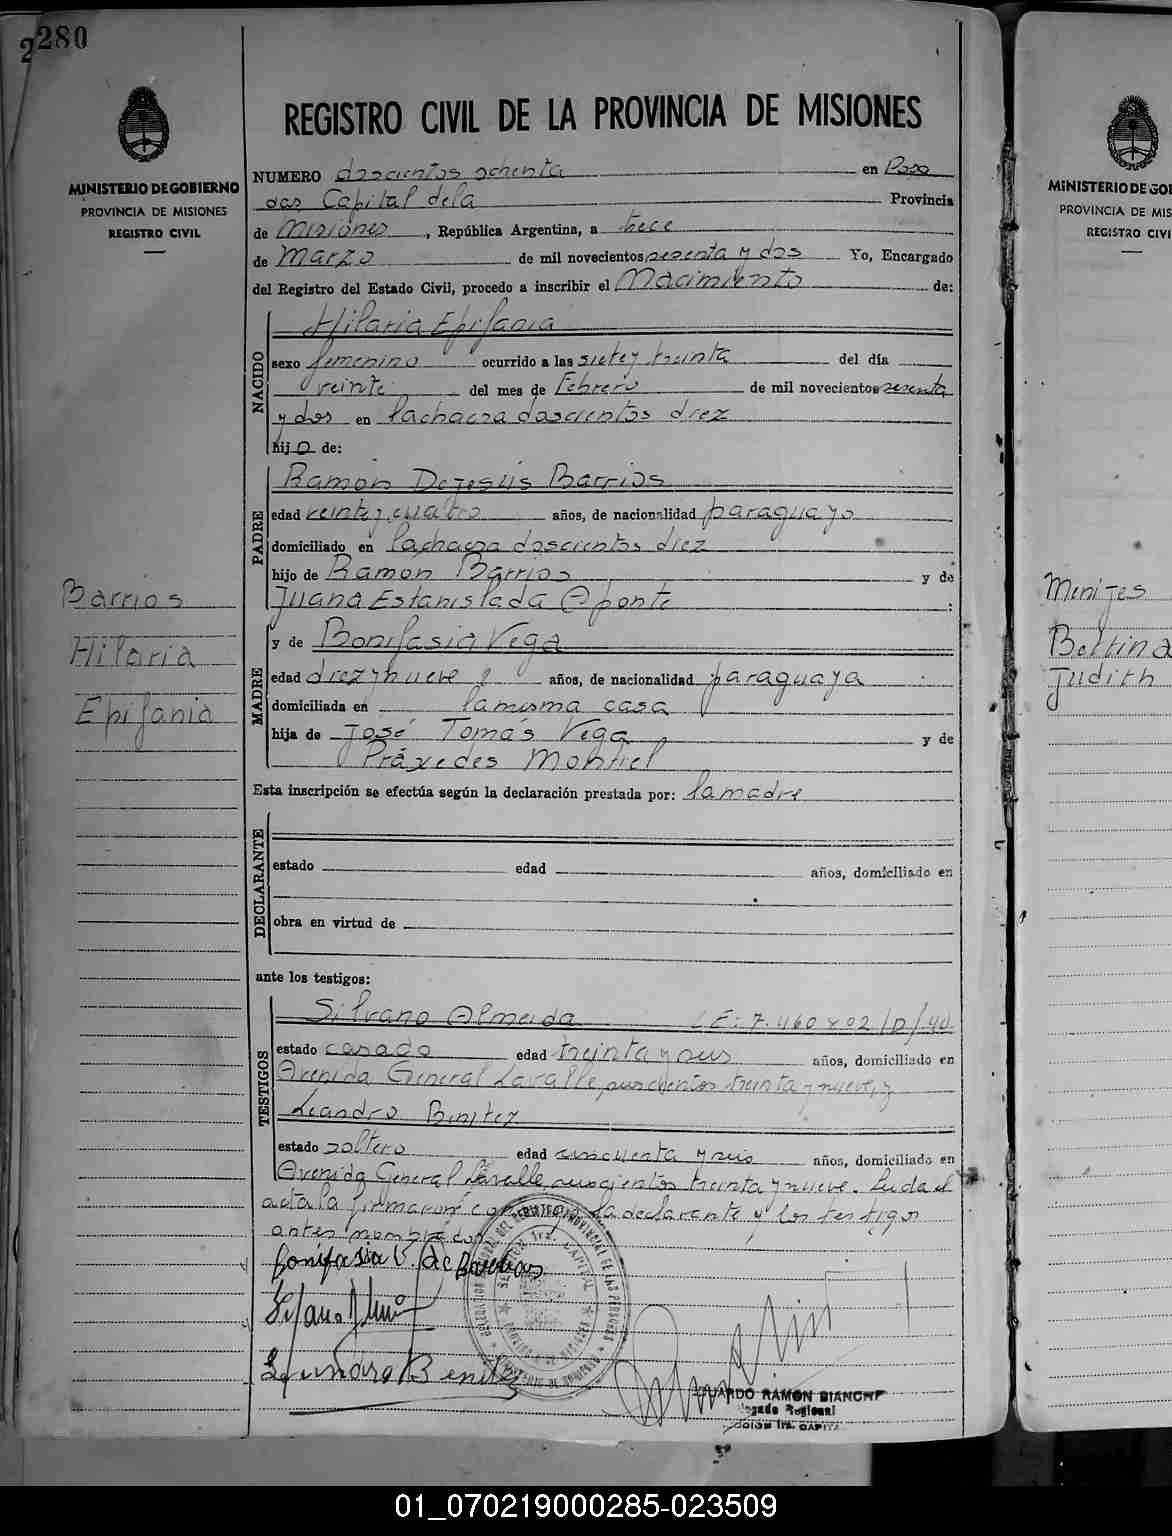 280
MINISTERIO DE GOBIERNO
PROVINCIA DE MISIONES
REGISTRO CIVIL
Barrios
Hilaria
Epifania
REGISTRO CIVIL DE LA PROVINCIA DE MISIONES
NUMERO doscientos ochenta en Posa
das Capital dela Provincia
de Misiones, República Argentina, a trece
de Marzo de mil novecientos sesenta y dos Yo, Encargado
del Registro del Estado Civil, procedo a inscribir el Nacimiento de:
NACIDO
Hilaria Epifania
sexo femenino ocurrido a las siete y treinta del día
veinte del mes de Febrero de mil novecientos sesenta
y dos en la chacra doscientos diez
hij a de:
PADRE
Ramón Dejesús Barrios
edad veinte y cuatro años, de nacionalidad paraguayo
domiciliado en la chacra doscientos diez
hijo de Ramón Barrios y de
Juana Estanislada Aponte :
MADRE
y de Bonifasia Vega
edad diez y nueve años, de nacionalidad paraguaya
domiciliada en la misma casa
hija de José Tomás Vega y de
Práxedes Montiel
Esta inscripción se efectúa según la declaración prestada por: la madre
DECLARANTE
estado edad años, domiciliado en
obra en virtud de
ante los testigos:
TESTIGOS
Silvano Almeida L.E: 7.460.802/D/40
estado casado edad treinta y seis años, domiciliado en
Avenida General Lavalle seiscientos treinta y nueve, y
Leandro Benitez
estado soltero edad cincuenta y seis años, domiciliado en
Avenida General Lavalle seiscientos treinta y nueve. Leída el
acta la firmaron conmigo la declarante y los testigos
antes nombrados
Bonifasia V. de Barrios
Leandro Benitez
EDUARDO RAMON BIANCHI
Delegado Regional
SECCION 1ra. CAPITAL
MINISTERIO DE GOB
PROVINCIA DE MIS
REGISTRO CIVI
Menises
Bettina
Judith
01_070219000285-023509